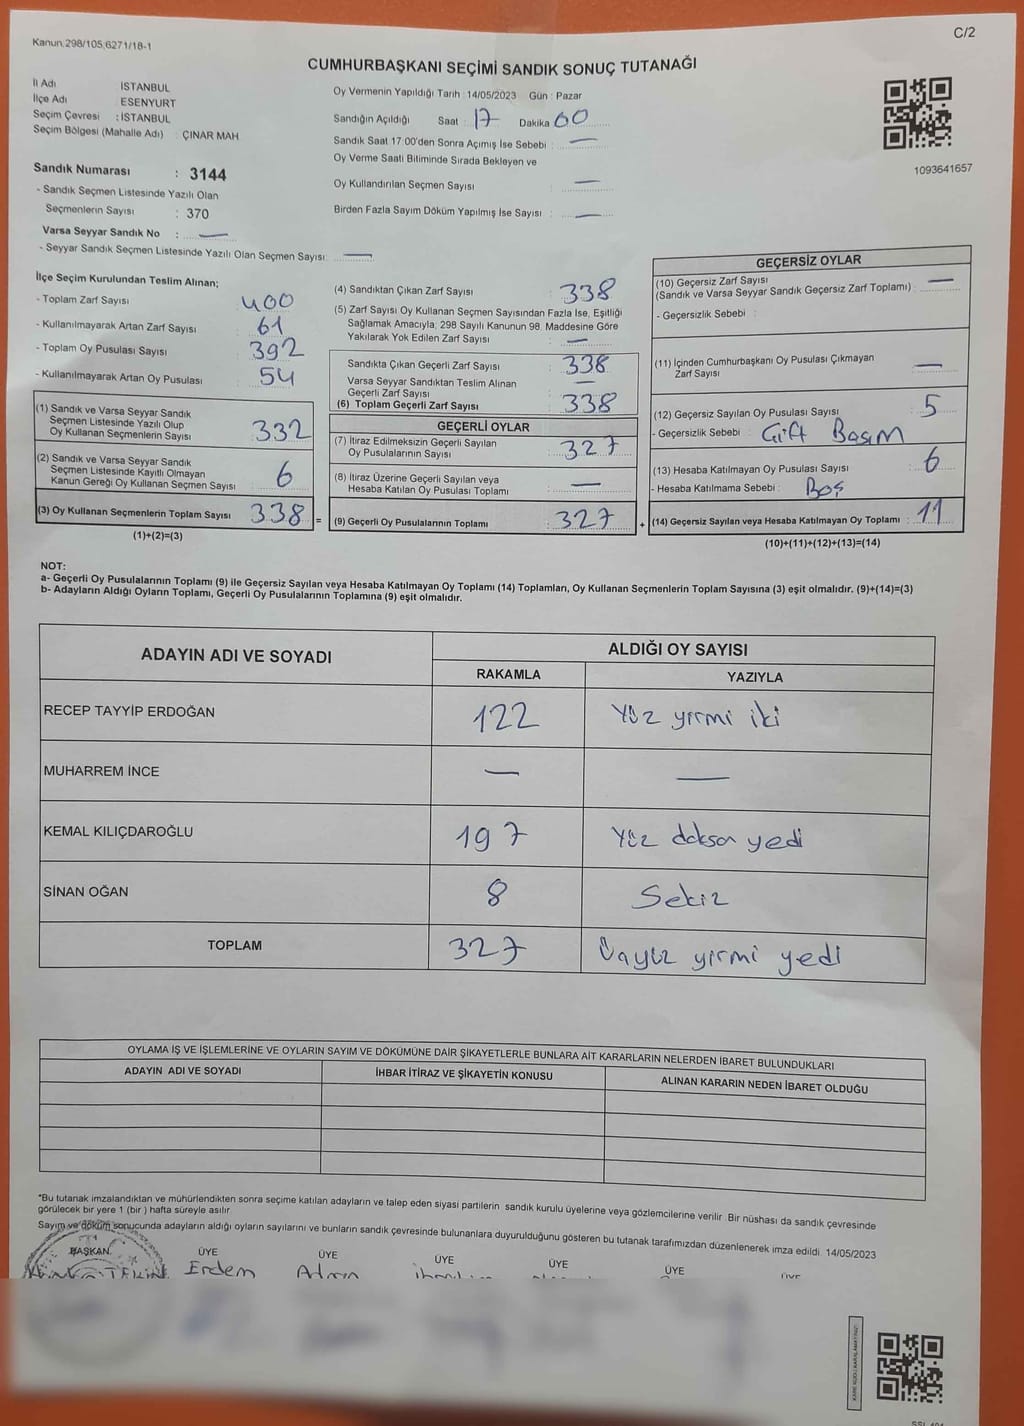 Kanun,298/105,6271/18-1
C/2
CUMHURBAŞKANI SEÇİMİ SANDIK SONUÇ TUTANAĞI
İl Adı İSTANBUL
İlçe Adı : ESENYURT
Seçim Çevresi : İSTANBUL
Seçim Bölgesi (Mahalle Adı) : ÇINAR MAH
Sandık Numarası : 3144
- Sandık Seçmen Listesinde Yazılı Olan
Seçmenlerin Sayısı : 370
Varsa Seyyar Sandık No : —
- Seyyar Sandık Seçmen Listesinde Yazılı Olan Seçmen Sayısı : —
Oy Vermenin Yapıldığı Tarih : 14/05/2023 Gün : Pazar
Sandığın Açıldığı Saat : 17 Dakika 00
Sandık Saat 17:00'den Sonra Açımış İse Sebebi : —
Oy Verme Saati Bitiminde Sırada Bekleyen ve
Oy Kullandırılan Seçmen Sayısı : —
Birden Fazla Sayım Döküm Yapılmış İse Sayısı : —
1093641657
İlçe Seçim Kurulundan Teslim Alınan;
- Toplam Zarf Sayısı : 400
- Kullanılmayarak Artan Zarf Sayısı : 61
- Toplam Oy Pusulası Sayısı : 392
- Kullanılmayarak Artan Oy Pusulası : 54
(1) Sandık ve Varsa Seyyar Sandık
Seçmen Listesinde Yazılı Olup
Oy Kullanan Seçmenlerin Sayısı : 332
(2) Sandık ve Varsa Seyyar Sandık
Seçmen Listesinde Kayıtlı Olmayan
Kanun Gereği Oy Kullanan Seçmen Sayısı : 6
(3) Oy Kullanan Seçmenlerin Toplam Sayısı : 338 =
(1)+(2)=(3)
(4) Sandıktan Çıkan Zarf Sayısı : 338
(5) Zarf Sayısı Oy Kullanan Seçmen Sayısından Fazla İse, Eşitliği
Sağlamak Amacıyla, 298 Sayılı Kanunun 98. Maddesine Göre
Yakılarak Yok Edilen Zarf Sayısı : —
Sandıkta Çıkan Geçerli Zarf Sayısı : 338
Varsa Seyyar Sandıktan Teslim Alınan
Geçerli Zarf Sayısı : —
(6) Toplam Geçerli Zarf Sayısı : 338
GEÇERLİ OYLAR
(7) İtiraz Edilmeksizin Geçerli Sayılan
Oy Pusulalarının Sayısı : 327
(8) İtiraz Üzerine Geçerli Sayılan veya
Hesaba Katılan Oy Pusulası Toplamı : —
(9) Geçerli Oy Pusulalarının Toplamı : 327 +
GEÇERSİZ OYLAR
(10) Geçersiz Zarf Sayısı
(Sandık ve Varsa Seyyar Sandık Geçersiz Zarf Toplamı) : —
- Geçersizlik Sebebi :
(11) İçinden Cumhurbaşkanı Oy Pusulası Çıkmayan
Zarf Sayısı : —
(12) Geçersiz Sayılan Oy Pusulası Sayısı : 5
- Geçersizlik Sebebi : Çift Basım
(13) Hesaba Katılmayan Oy Pusulası Sayısı : 6
- Hesaba Katılmama Sebebi : Boş
(14) Geçersiz Sayılan veya Hesaba Katılmayan Oy Toplamı : 11
(10)+(11)+(12)+(13)=(14)
NOT:
a- Geçerli Oy Pusulalarının Toplamı (9) ile Geçersiz Sayılan veya Hesaba Katılmayan Oy Toplamı (14) Toplamları, Oy Kullanan Seçmenlerin Toplam Sayısına (3) eşit olmalıdır. (9)+(14)=(3)
b- Adayların Aldığı Oyların Toplamı, Geçerli Oy Pusulalarının Toplamına (9) eşit olmalıdır.
ADAYIN ADI VE SOYADI
ALDIĞI OY SAYISI
RAKAMLA YAZIYLA
RECEP TAYYİP ERDOĞAN 122 Yüz yirmi iki
MUHARREM İNCE — —
KEMAL KILIÇDAROĞLU 197 Yüz doksan yedi
SİNAN OĞAN 8 Sekiz
TOPLAM 327 Üçyüz yirmi yedi
OYLAMA İŞ VE İŞLEMLERİNE VE OYLARIN SAYIM VE DÖKÜMÜNE DAİR ŞİKAYETLERLE BUNLARA AİT KARARLARIN NELERDEN İBARET BULUNDUKLARI
ADAYIN ADI VE SOYADI İHBAR İTİRAZ VE ŞİKAYETİN KONUSU ALINAN KARARIN NEDEN İBARET OLDUĞU
*Bu tutanak imzalandıktan ve mühürlendikten sonra seçime katılan adayların ve talep eden siyasi partilerin sandık kurulu üyelerine veya gözlemcilerine verilir. Bir nüshası da sandık çevresinde
görülecek bir yere 1 (bir ) hafta süreyle asılır.
Sayım ve döküm sonucunda adayların aldığı oyların sayılarını ve bunların sandık çevresinde bulunanlara duyurulduğunu gösteren bu tutanak tarafımızdan düzenlenerek imza edildi. 14/05/2023
BAŞKAN ÜYE ÜYE ÜYE ÜYE ÜYE ÜYE
Erdem